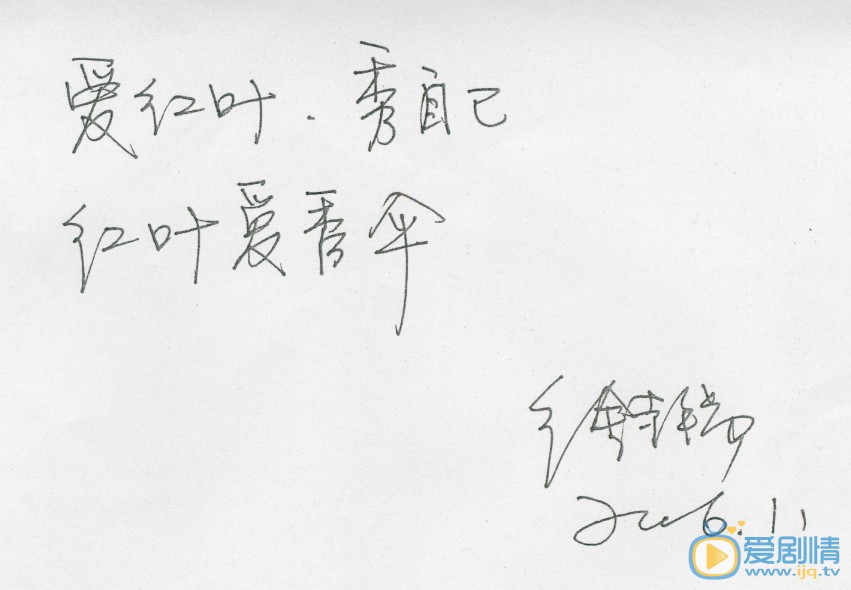 爱红叶.秀自己
红叶爱香伞
2006.11
爱剧情
www.ijq.tv